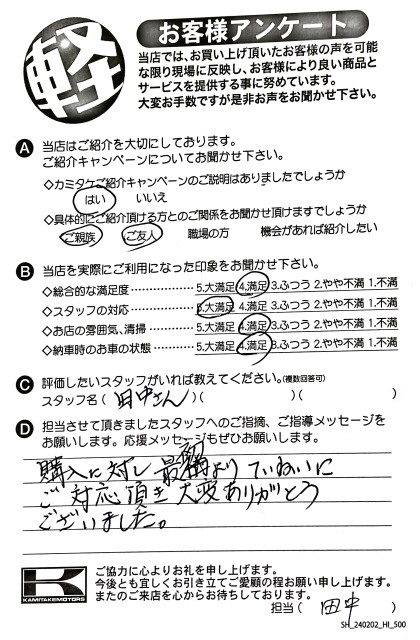 軽
お客様アンケート
当店では、お買い上げ頂いたお客様の声を可能
な限り現場に反映し、お客様により良い商品と
サービスを提供する事に努めています。
大変お手数ですが是非お声をお聞かせ下さい。
A 当店はご紹介を大切にしております。
ご紹介キャンペーンについてお聞かせ下さい。
◇カミタケご紹介キャンペーンのご説明はありましたでしょうか
はい いいえ
◇具体的にご紹介頂ける方とのご関係をお聞かせ頂けますでしょうか
ご親族 ご友人 職場の方 機会があれば紹介したい
B 当店を実際にご利用になった印象をお聞かせ下さい。
◇総合的な満足度 ‥‥‥‥‥‥ 5.大満足 4.満足 3.ふつう 2.やや不満 1.不満
◇スタッフの対応 ‥‥‥‥‥‥ 5.大満足 4.満足 3.ふつう 2.やや不満 1.不満
◇お店の雰囲気、清掃 ‥‥‥‥ 5.大満足 4.満足 3.ふつう 2.やや不満 1.不満
◇納車時のお車の状態 ‥‥‥‥ 5.大満足 4.満足 3.ふつう 2.やや不満 1.不満
C 評価したいスタッフがいれば教えてください。(複数回答可)
スタッフ名 ( 田中さん )( )( )
D 担当させて頂きましたスタッフへのご指摘、ご指導メッセージを
お願いします。応援メッセージもぜひお願いします。
購入に対し最初よりていねいに
ご対応頂き大変ありがとう
ございました。
K KAMITAKEMOTORS
ご協力に心よりお礼を申し上げます。
今後とも宜しくお引き立てご愛顧の程お願い申し上げます。
またのご来店を心からお待ちしております。
担当 ( 田中 )
SH_240202_HI_500